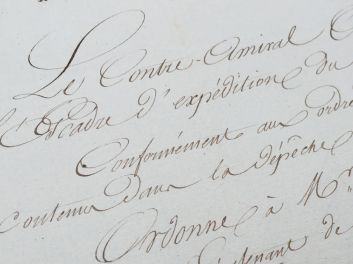 Le Contre-Amiral C
l'Escadre d'expédition du
Conformément aux ordre
contenus dans la dépêche
Ordonne à Mr
Lieutenant de